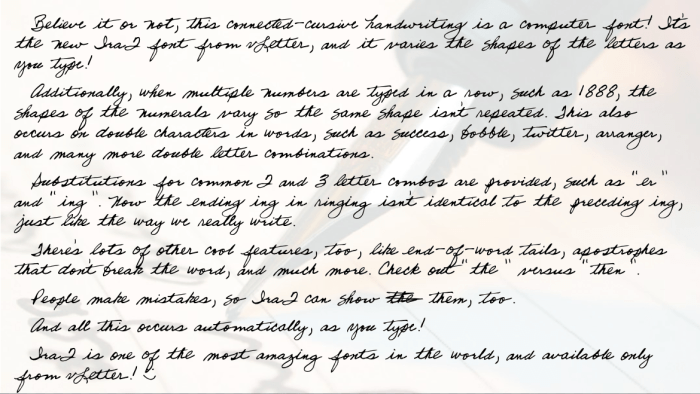 Believe it or not, this connected-cursive handwriting is a computer font! It's
the new Ira2 font from vLetter, and it varies the shapes of the letters as
you type!
Additionally, when multiple numbers are typed in a row, such as 1888, the
shapes of the numerals vary so the same shape isn't repeated. This also
occurs on double characters in words, such as success, bobble, twitter, arranger,
and many more double letter combinations.
Substitutions for common 2 and 3 letter combos are provided, such as "er"
and "ing". Now the ending ing in ringing isn't identical to the preceding ing,
just like the way we really write.
There's lots of other cool features, too, like end-of-word tails, apostrophes
that don't break the word, and much more. Check out "the" versus "then".
People make mistakes, so Ira2 can show the them, too.
And all this occurs automatically, as you type!
Ira2 is one of the most amazing fonts in the world, and available only
from vLetter!